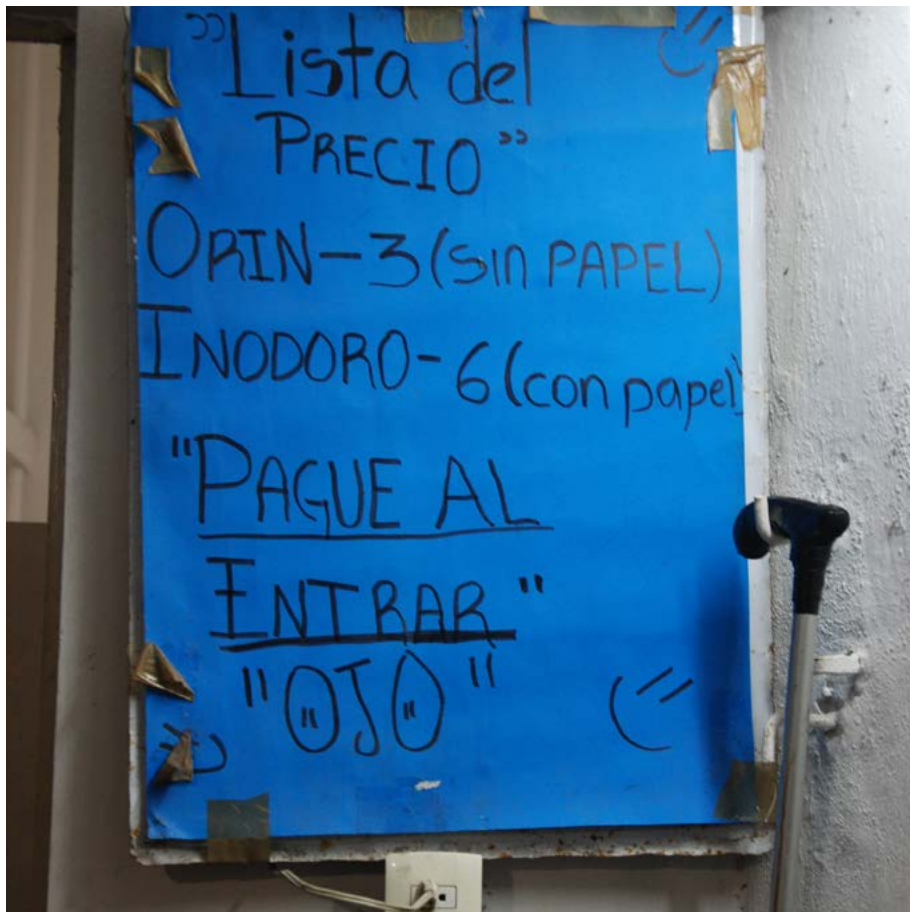 "Lista del
PRECIO"
ORIN-3 (sin PAPEL)
INODORO-6 (con papel)
"PAGUE AL
ENTRAR"
"OJO"